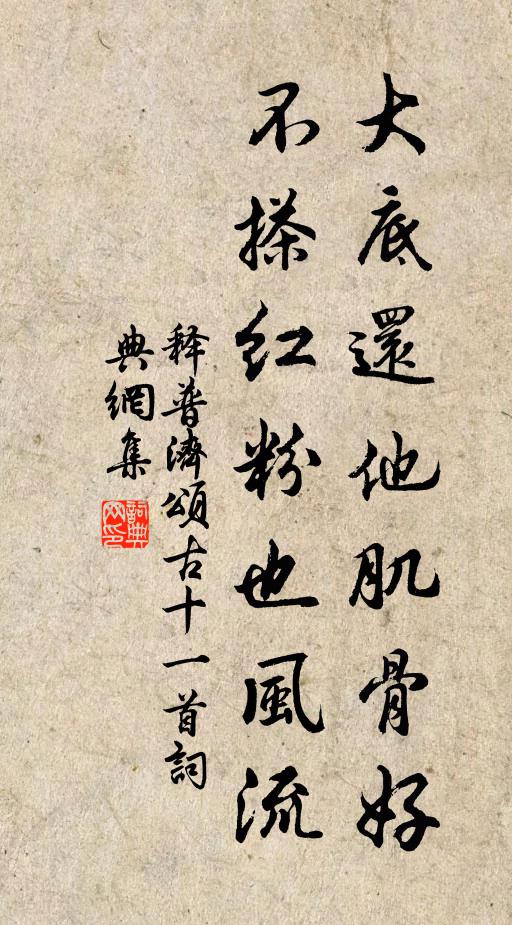 大底還他肌骨好
不搽紅粉也風流
释普濟頌古十一首詞
典網集
詞典網印